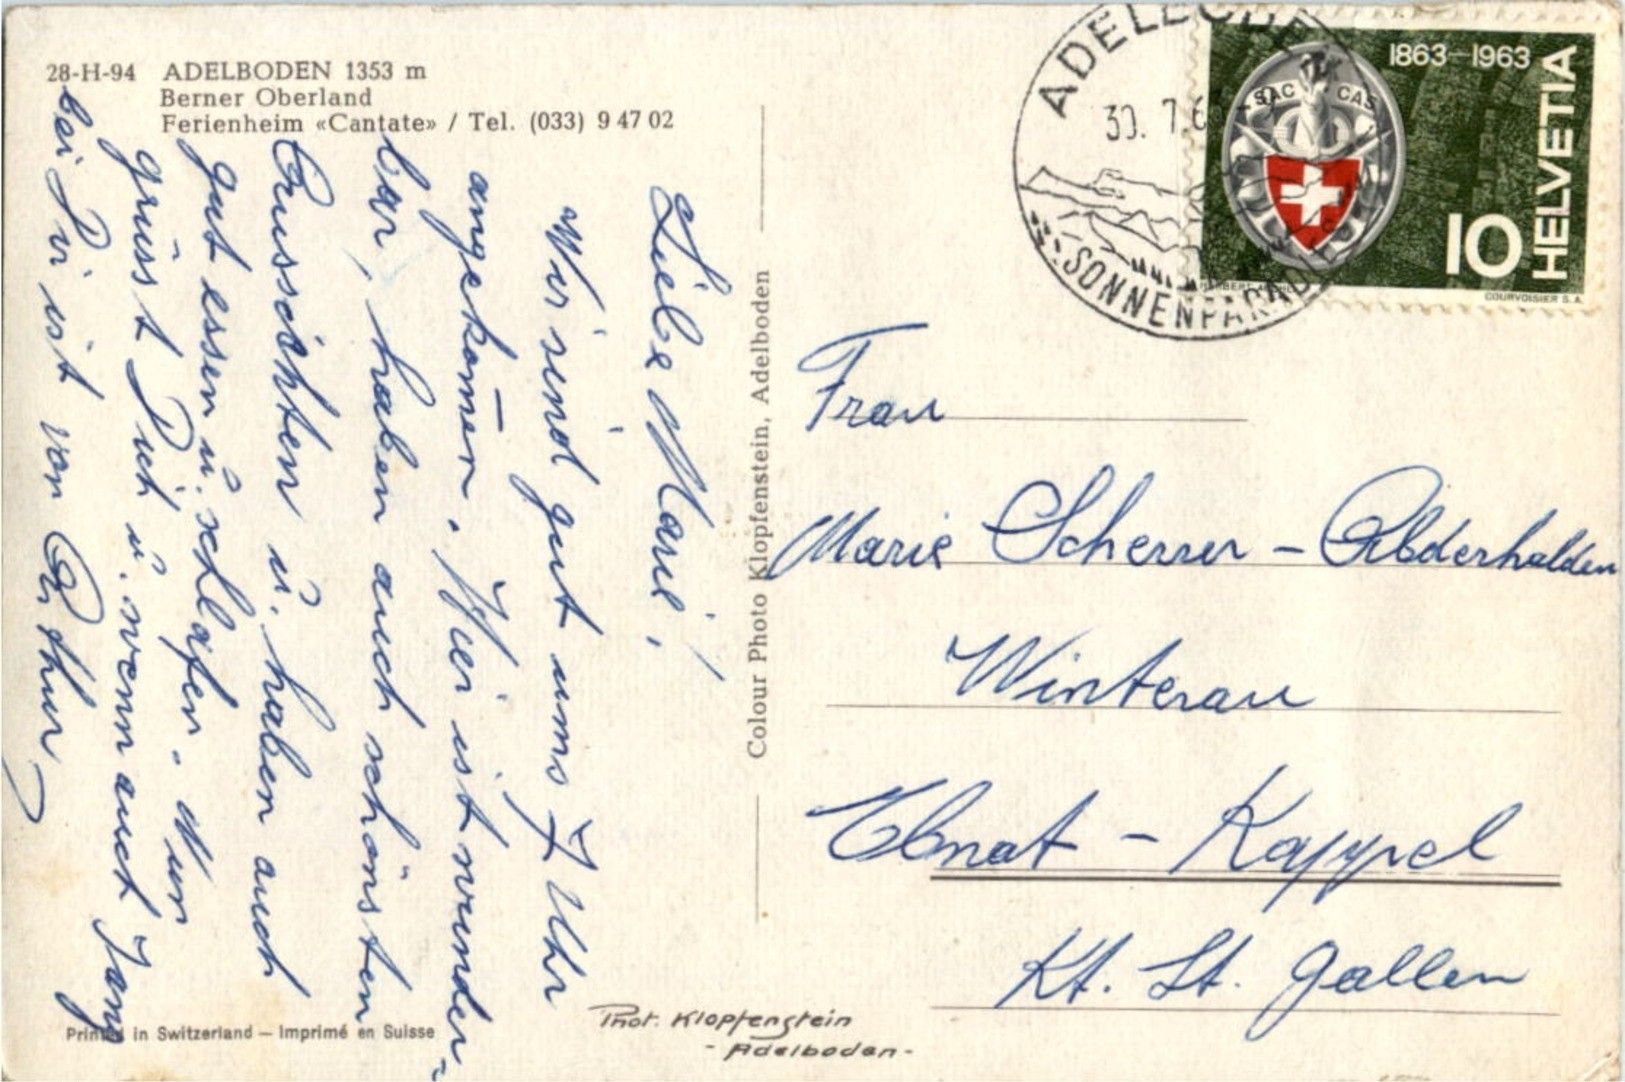 28-H-94 ADELBODEN 1353 m
Berner Oberland
Ferienheim «Cantate» / Tel. (033) 9 47 02
Liebe Marie,
Wir sind gut ums 7 Uhr
angekom̄en. Hier ist wunder-
bar, haben auch schönsten
Aussichten u. haben auch
gut essen u. schlafen. Nun
grüsst Dich u. wenn auch lang
bei Dir ist von Arthur
Printed in Switzerland — Imprimé en Suisse
Colour Photo Klopfenstein, Adelboden
Phot. Klopfenstein
- Adelboden -
ADELBODEN
30. 7. 6
SONNENPARADIES
1863–1963
SAC CAS
HELVETIA
10
COURVOISIER S.A.
Frau
Marie Scherrer – Abderhalden
Winterau
Ebnat – Kappel
Kt. St. Gallen